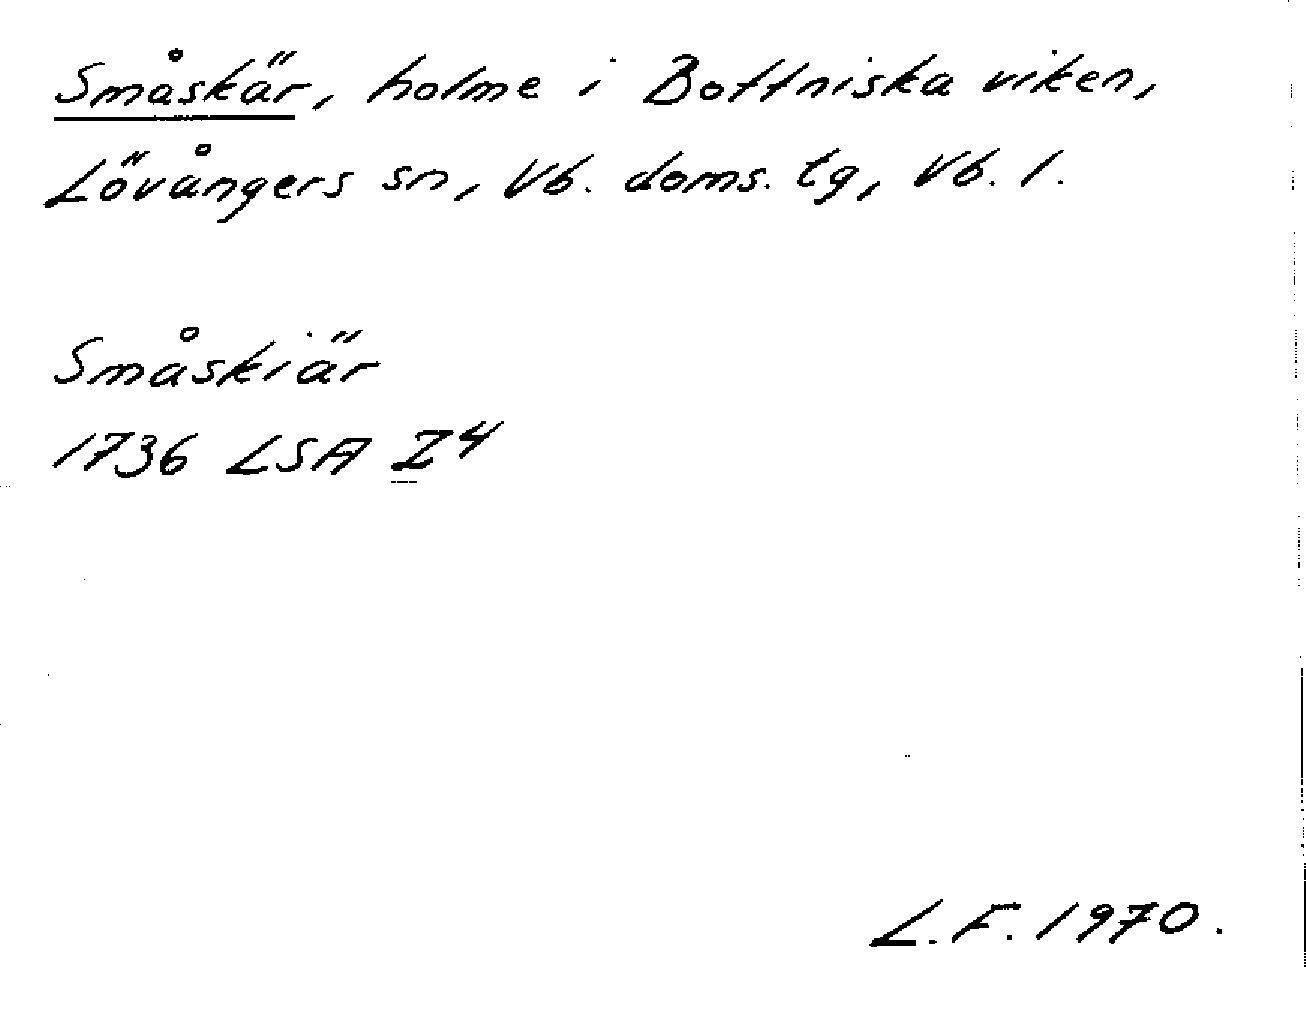 Småskär, holme i Bottniska viken,
Lövångers sn, Vb. doms. tg, Vb. l.
Småskiär
1736 LSA Z4
L.F. 1970.